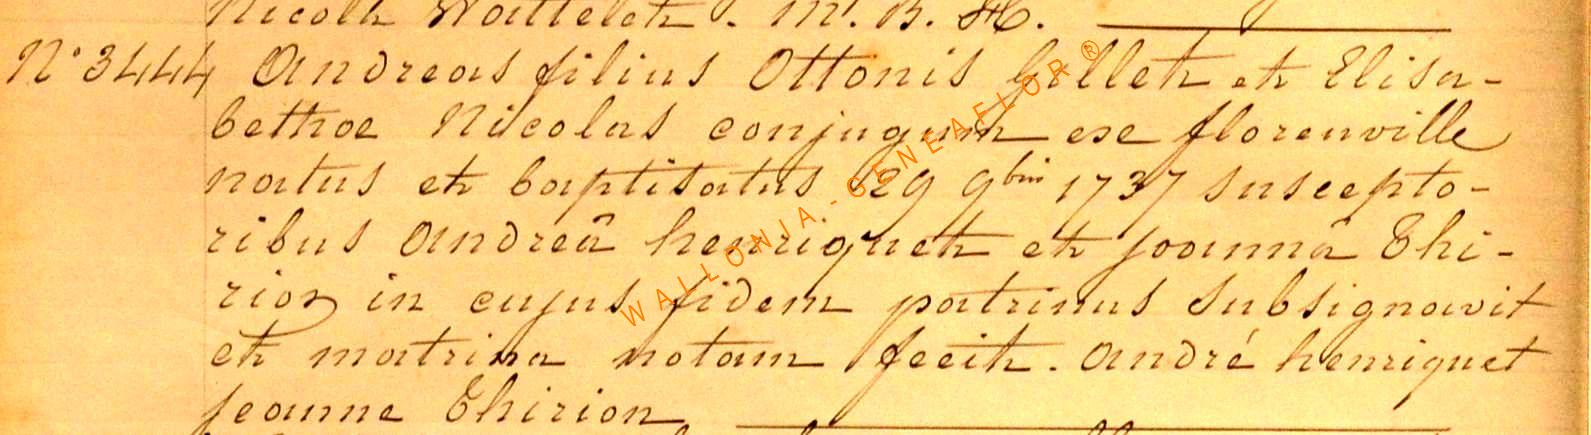 Nicolle Wattelet. M. B. H.
N° 3444 Andreas filius Ottonis Gillet et Elisa-
bethae Nicolas conjugum ex florenville
natus et baptisatus 29 9bris 1737 suscepto-
ribus Andreâ henriquet et joannâ Thi-
rion in cujus fidem patrinus subsignavit
et matrina notam fecit. André henriquet
jeanne Thirion
WALLONIA - GENEAFLOR ®